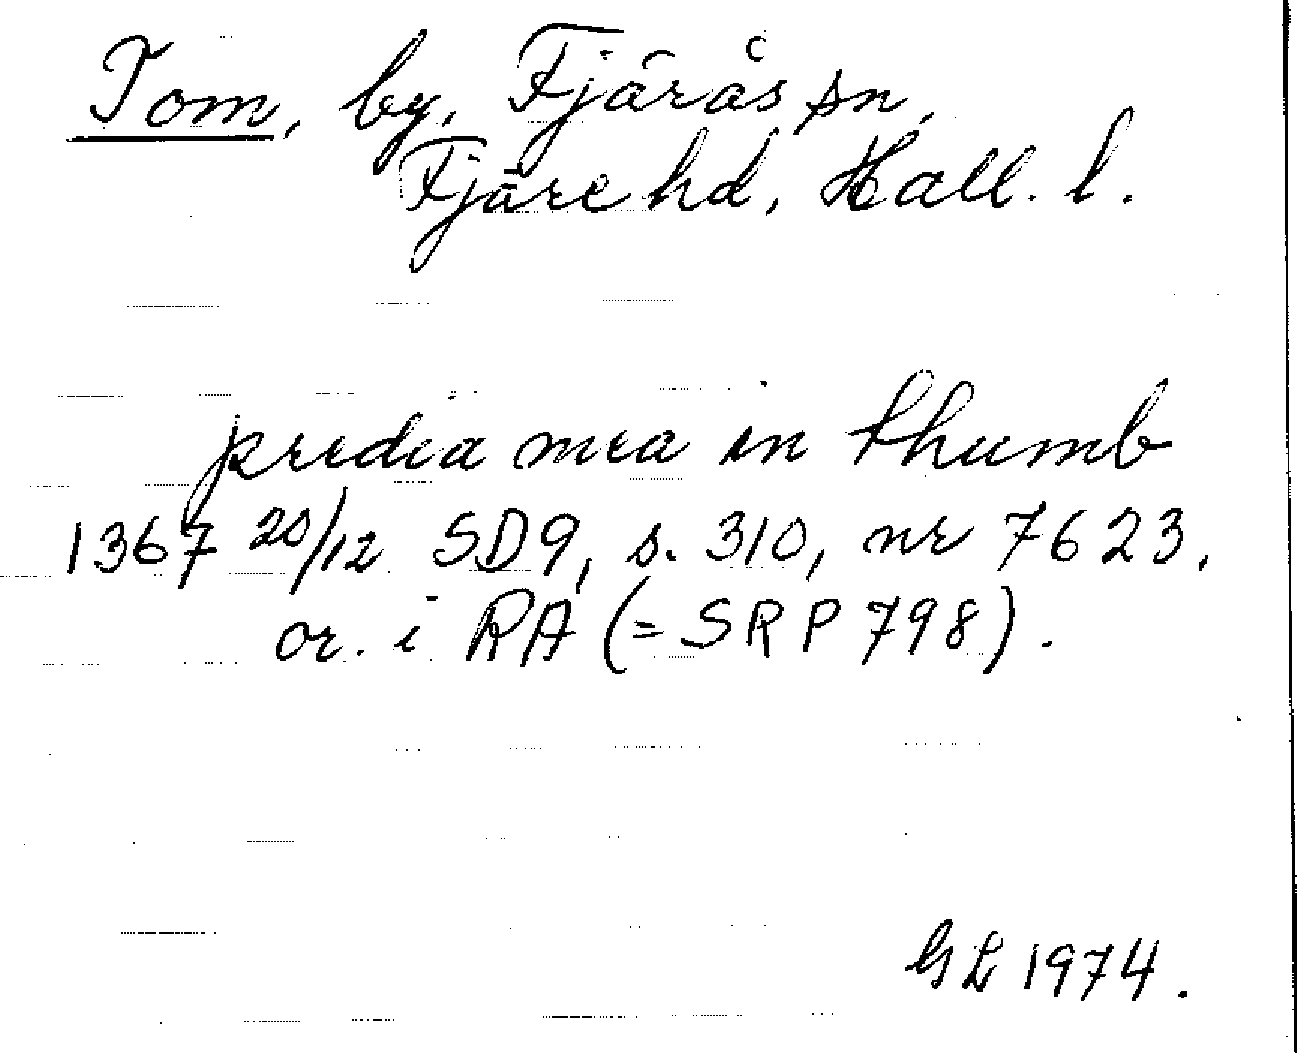 Tom, by, Fjärås sn,
Fjäre hd, Hall. l.
predia mea in thumb
1367 20/12 SD9, s. 310, nr 7623,
or. i RA (= SRP 798).
GL 1974.